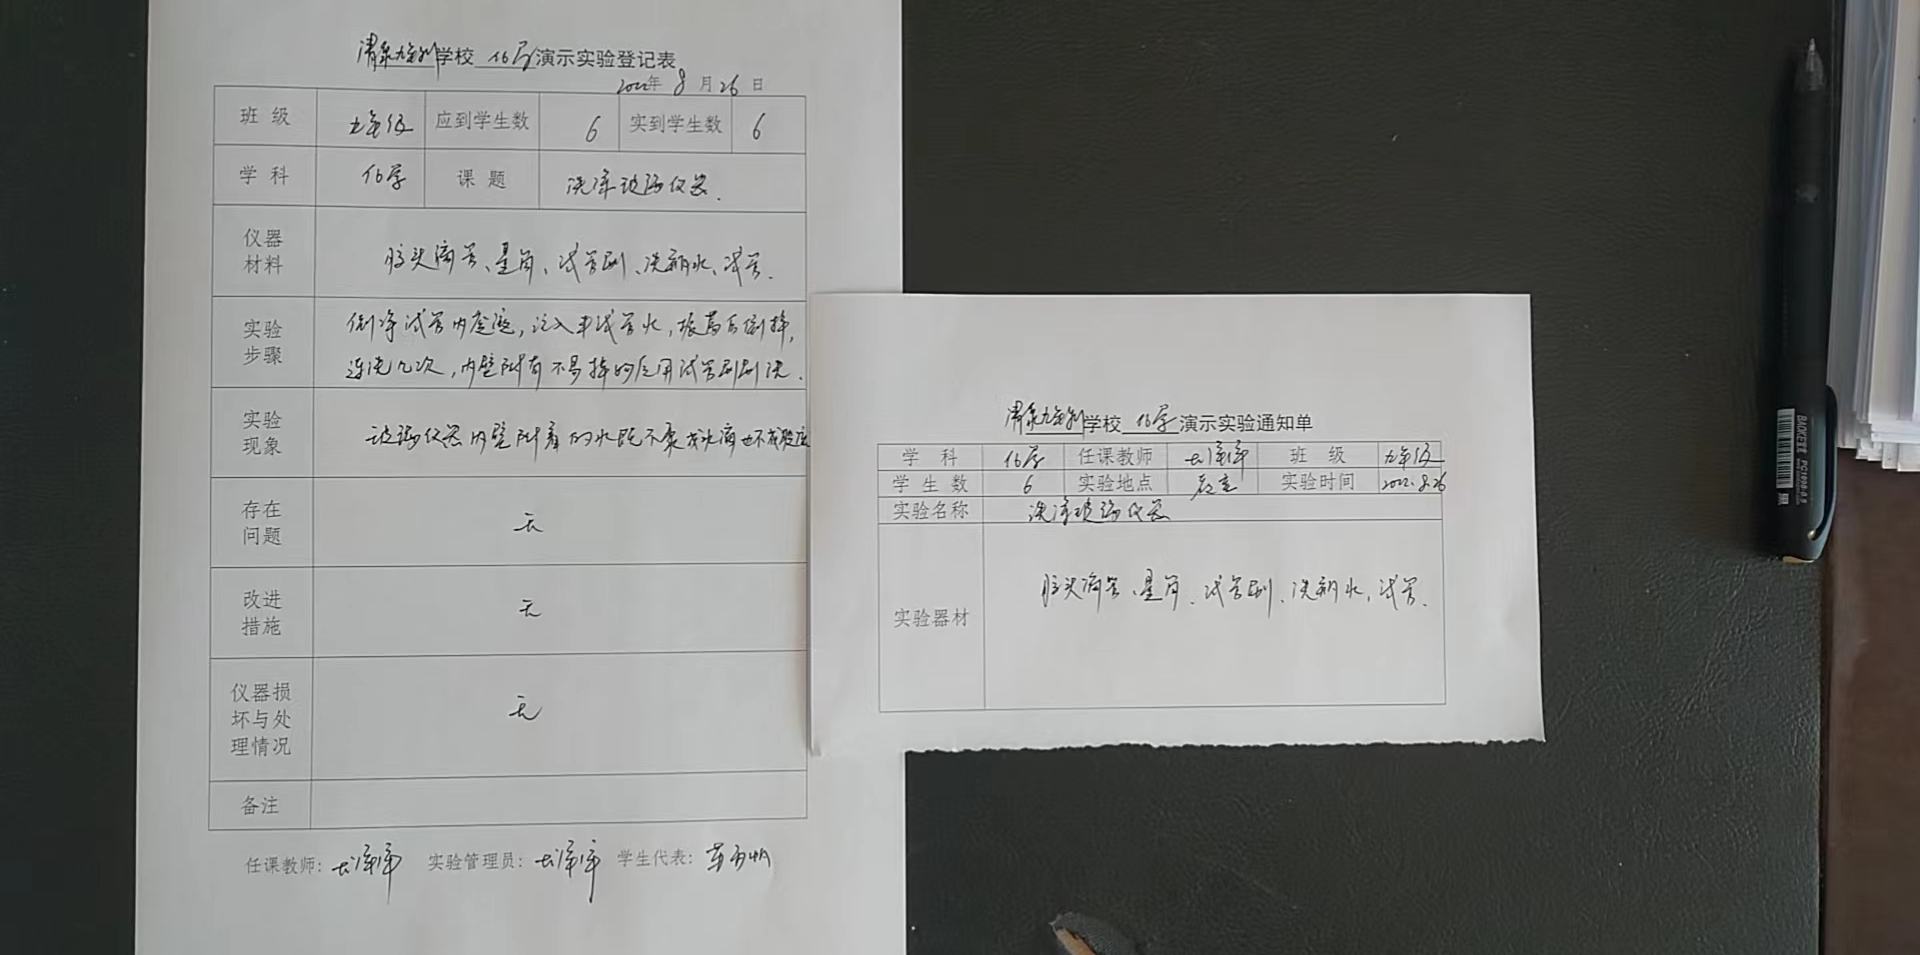 学校 化学 演示实验登记表
2022年 8 月 26 日
班级 九年级 应到学生数 6 实到学生数 6
学科 化学 课题 洗净玻璃仪器.
仪器材料 胶头滴管、量筒、试管刷、洗瓶水、试管.
实验步骤 倒净试管内废液,注入半试管水,振荡后倒掉,
连洗几次,内壁附有不易掉的应用试管刷刷洗.
实验现象 玻璃仪器内壁附着的水既不聚成水滴也不成股流
存在问题 无
改进措施 无
仪器损坏与处理情况 无
备注
任课教师: 实验管理员: 学生代表:
学校 化学 演示实验通知单
学科 化学 任课教师 班级 九年级
学生数 6 实验地点 实验时间 2022.8.26
实验名称 洗净玻璃仪器
实验器材 胶头滴管、量筒、试管刷、洗瓶水,试管.
BAOKE宝克 PC1808 0.5 黑